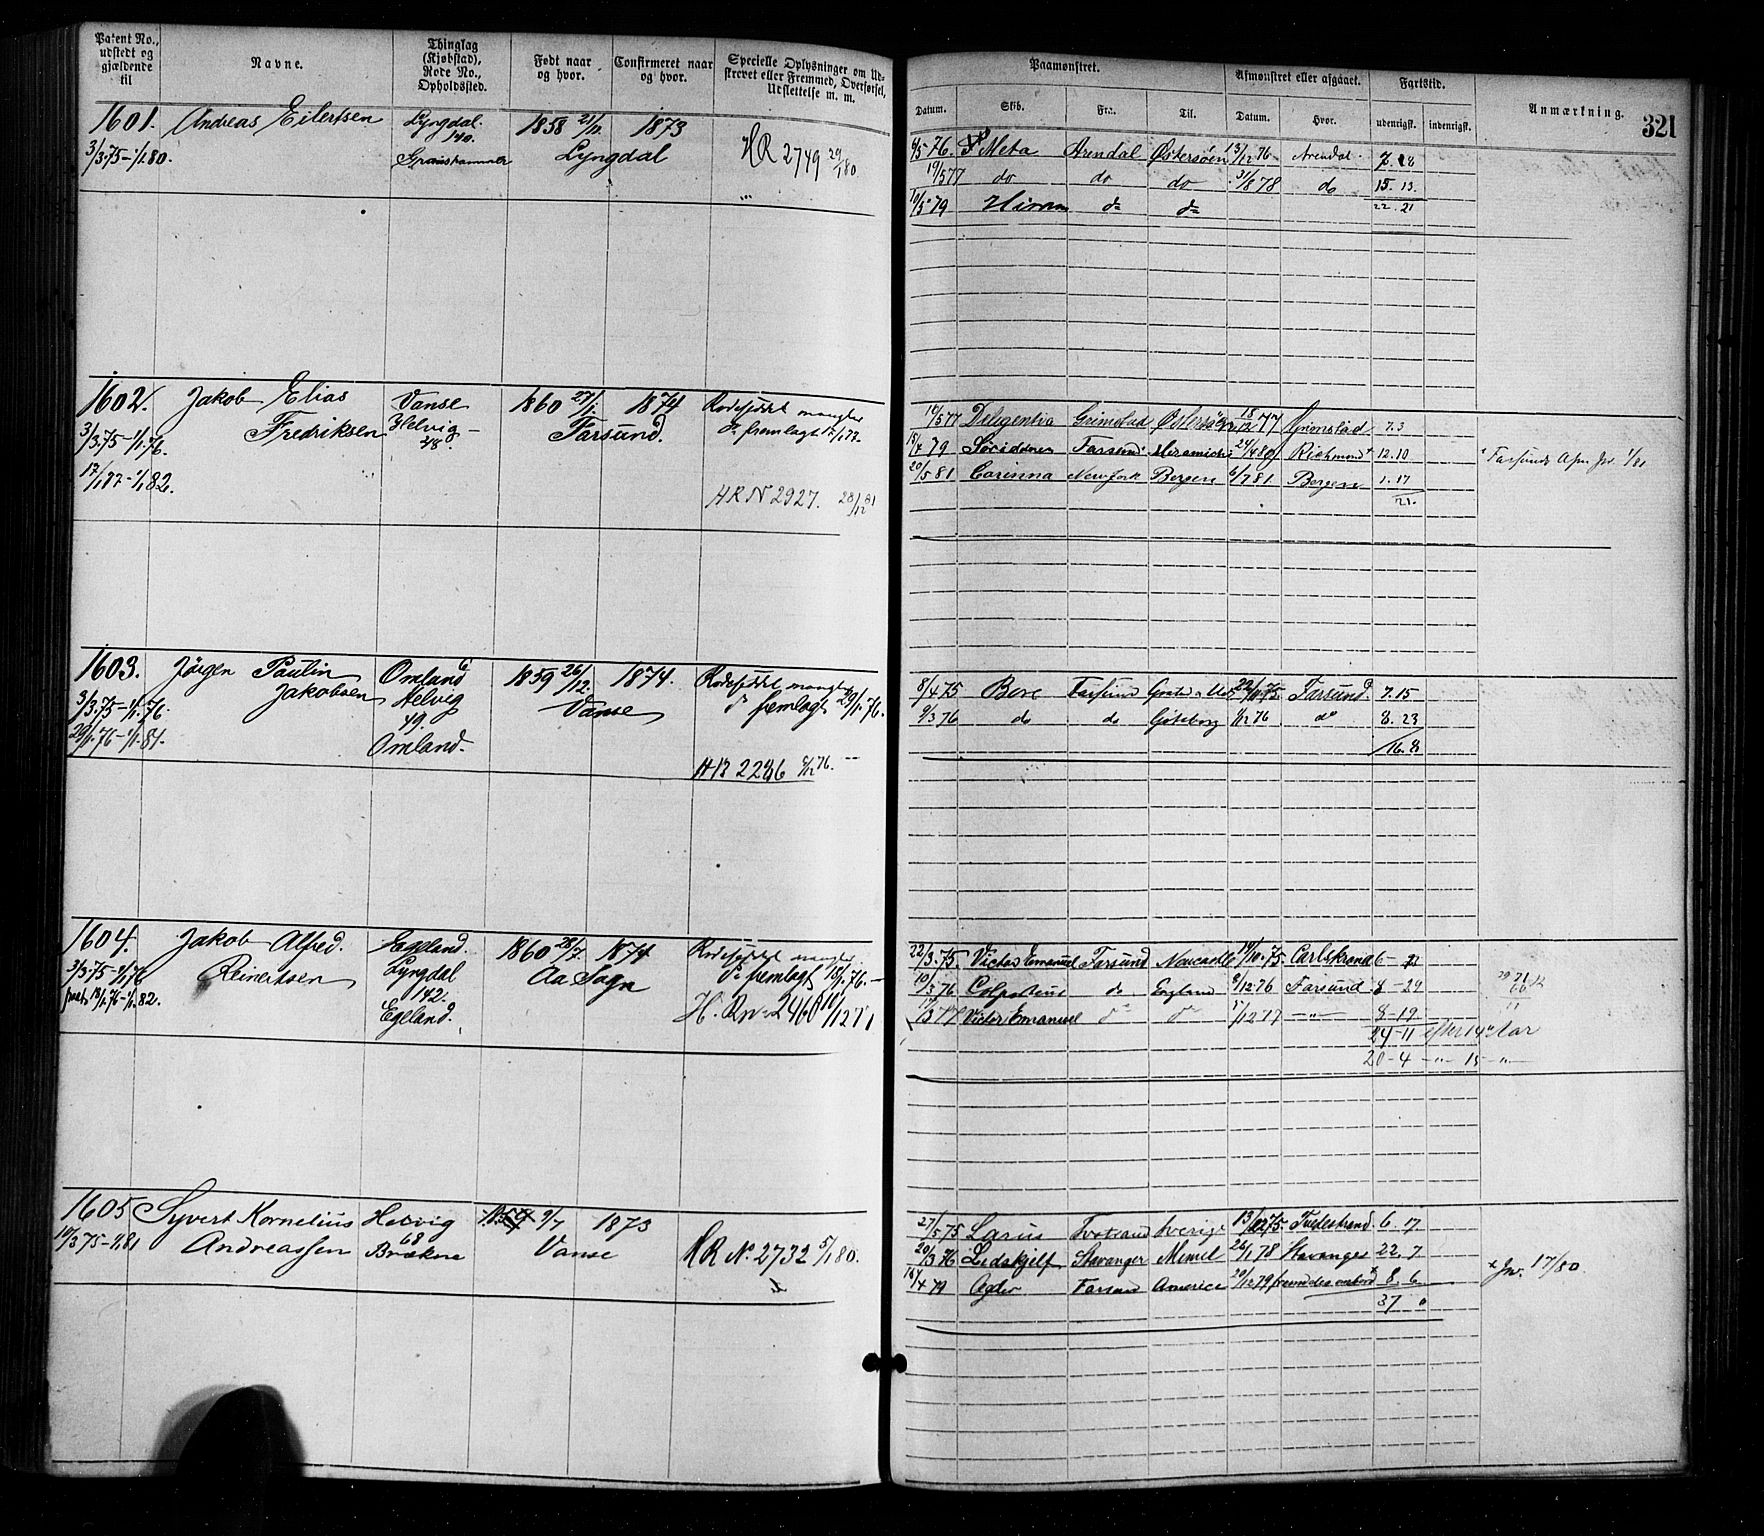 Patent No., udstedt og gjældende til
Navne.
Thinglag (Kjøbstad), Rode No., Opholdssted.
Født naar og hvor.
Confirmeret naar og hvor.
Specielle Oplysninger om Udstrevet eller Fremmed, Overførsel, Udslettelse m. m.
1601. Andreas Eilertsen Lyngdal. 1858 21/11 1873
3/3.75-1/1.80. 140. Lyngdal HR 2749 29/1 80
1602. Jakob Elias Vanse 1860 27/1. 1874 Rodeseddel mangler
3/3.75-1/1.76. Fredriksen Helvig 48. Farsund. do fremlagt 17/1.77
17/1.77-1/1.82. HR N 2927. 28/12 81
1603. Jørgen Paulin Omland 1859 26/12. 1874. Rodeseddel mangler
3/3.75-1/1.76. Jakobsen Helvig Vanse do fremlagt 29/1.76.
29/1.76-1/1.81. 49.
Omland.
HR 2226 76.
1604. Jakob Alfred. Egeland. 1860 28/7. 1874 Rodeseddel mangler.
3/3.75-1/1.76 Reinertsen Lyngdal Aa Sogn do fremlagt 18/1.76.
18/1.76-1/1.82. 142.
Egeland. H. R No 2460 /12 77
1605 Syvert Kornelius Helvig 9/7 1873
10/3.75-1/1.81 Andreassen 68 Vanse HR No. 2732 5/1 80.
Brækne
Paamønstret.
Afmønstret eller afgaaet.
Fartstid.
Anmærkning. 321
Datum. Skib. Fra. Til. Datum. Hvor. udenrigsk. indenrigsk.
6/5 76. Meta Arendal Østersøen 13/12 76 Arendal. 7. 8
19/5 77 do do do 31/8 78 do 15. 13.
10/5 79 do do 22. 21
10/5 77 Diligentia Grimstad 18/12 77 7.3
15/4 79 Farsund Miramichi 24/4 80 Richmond + 12.10
20/5 81 Carinna New York Bergen 6/7 81 Bergen 1. 17
21.
8/4 75 Farsund 75 Farsund. 7. 15
9/3 76 do do Gøteborg 76 do 8. 23
16. 8
22/3.75. Victor Emanuel Farsund Newcastle 14/10.75. Carlskrona 6 - 21
10/3 76 do England 9/12 76 Farsund 8 - 29
3 77 Victor Emanuel do do /12 77 -"- 8 - 19
24 - 11 efter 14 Aar
20 - 4 -"- 15 -"-
27/5 75 Larus Sverige 13/ 75 6. 17.
20/3 76 Lidskjelf Stavanger Memel 26/1 78 Stavanger 22. 7
14/4 79 Agder Farsund America 20/12 79 8. 6
37
x Jnr. 17/80.